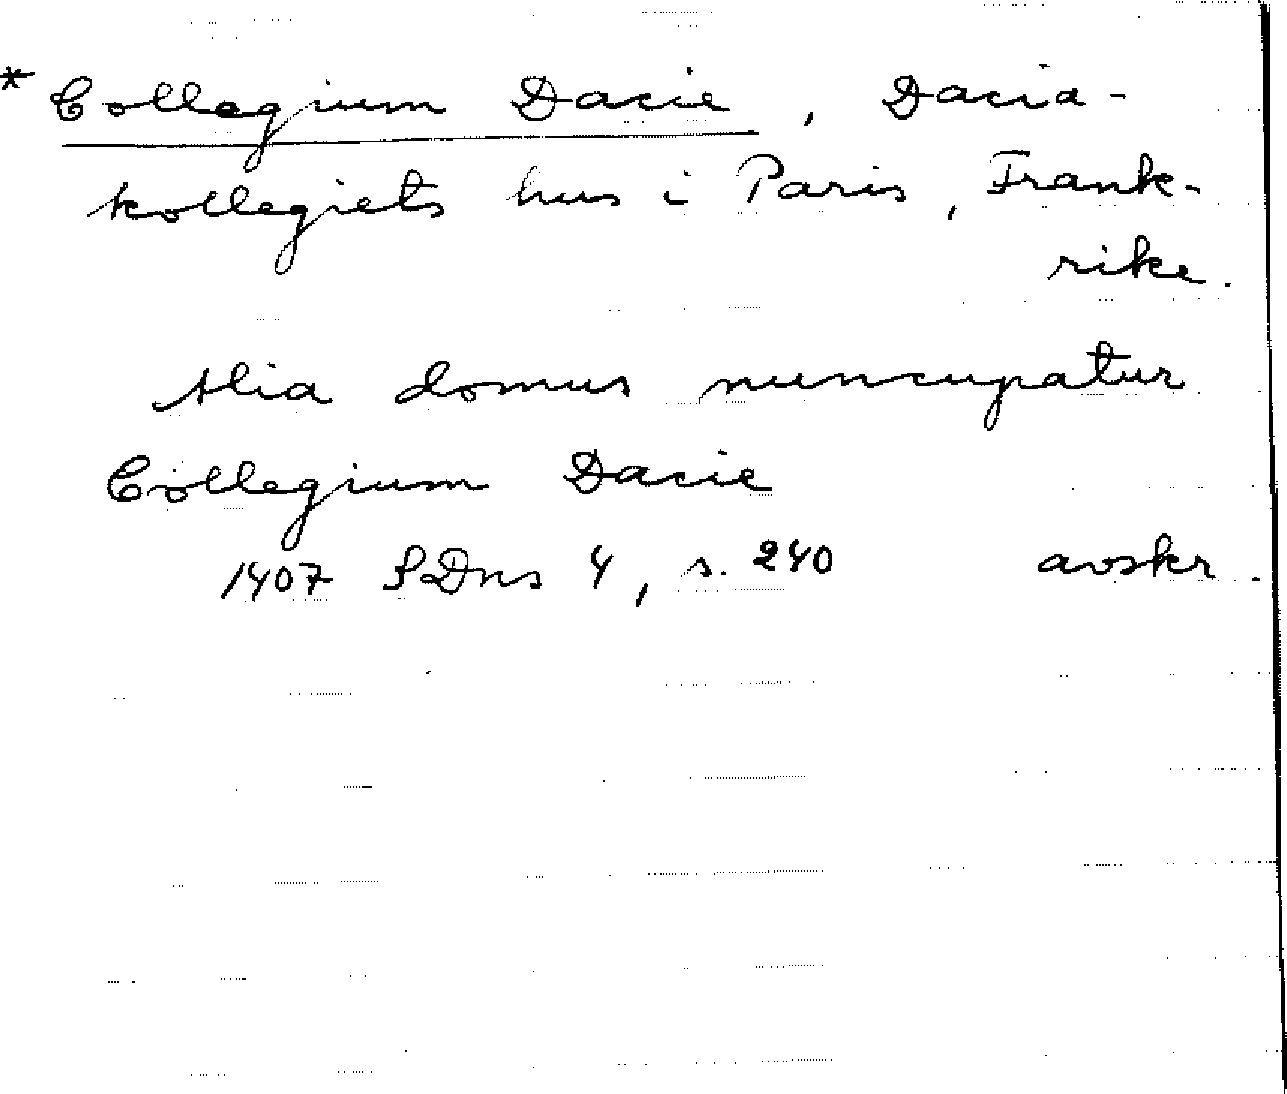 * Collegium Dacie, Dacia-
kollegiets hus i Paris, Frank-
rike.
Alia domus nuncupatur
Collegium Dacie
1407 SDns 4, s. 240 avskr.